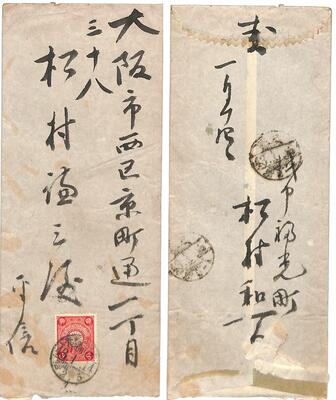 大阪市西区京町通一丁目
三十八
松村謙三殿
平信
一月四日
越中福光町
松村和一